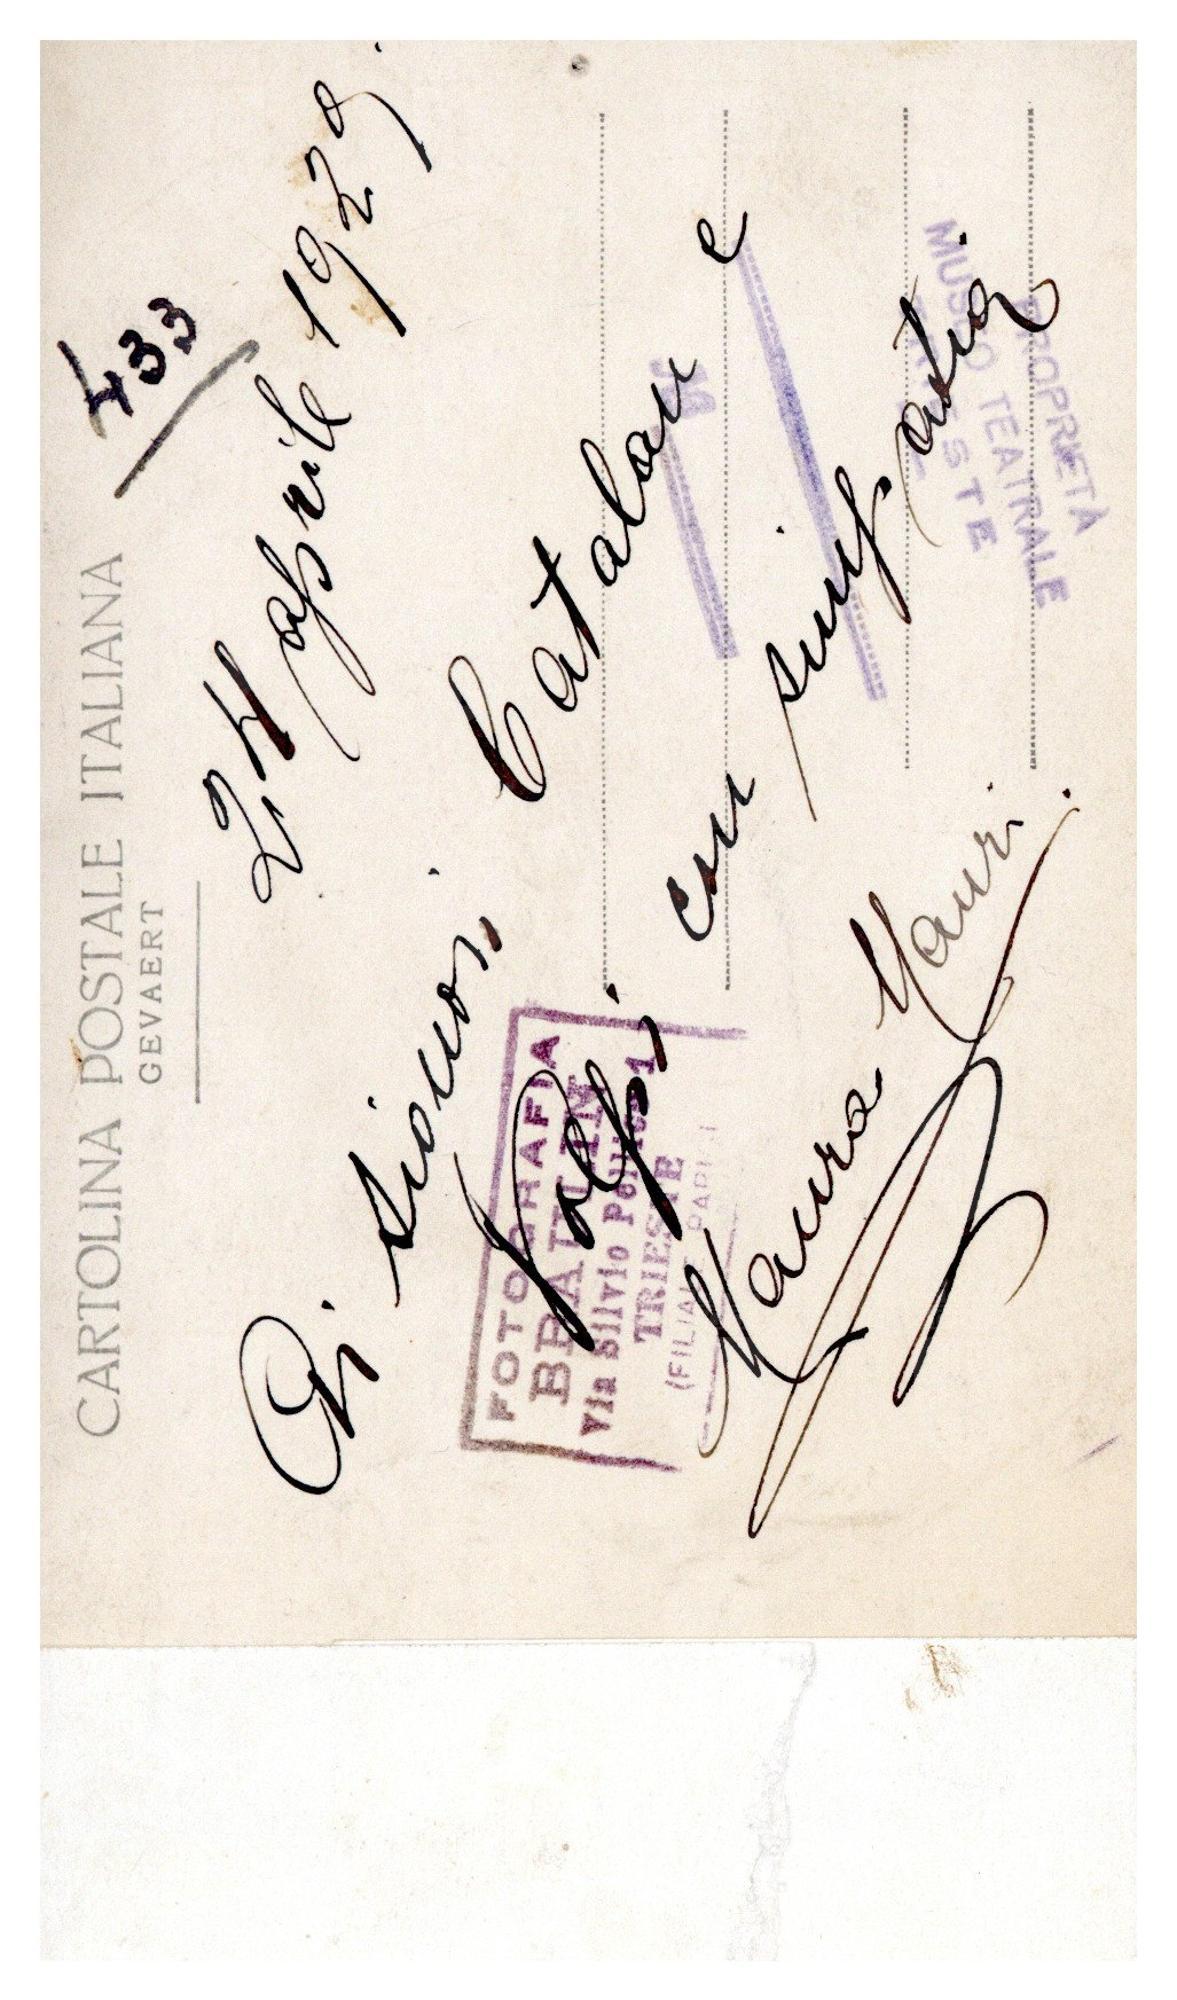 433
CARTOLINA POSTALE ITALIANA
GEVAERT
24 aprile 1929.
Ai signori
Catalan e
Volpi con simpatia
Maura Mauri.
FOTOGRAFIA
Via Silvio Pellico 1
TRIESTE
(FILIALE PARIGI
PROPRIETÀ
MUSEO TEATRALE
TRIESTE